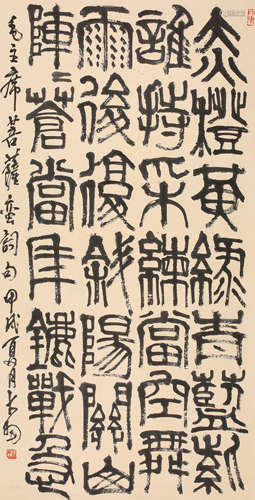 赤橙黃綠青藍紫
誰持采練當空舞
雨後復斜陽關山
陣〻蒼當年鏖戰急
毛主席菩薩蛮詞句甲戌夏月大